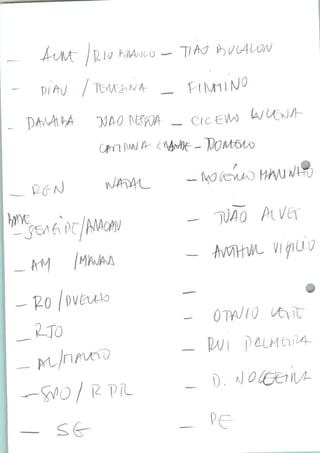 — ACRE / RIO BRANCO — TIÃO BOCALOM
— PIAU / TERESINA — FIRMINO
— PARAIBA JOÃO PESSOA — CICERO LUCENA
CAMPINA GRANDE — ROMERO
— RGN NATAL — ROGÉRIO MARINHO
— SERGIPE / ARACAJU — JOÃO ALVES
— AM / MANAUS — ARTHUR VIGILIO
— RO / PVELHO —
— RJO — OTAVIO LEITE
— AL / MACEIO — RUI PALMEIRA
— SPO / R PR — D. NOGUEIRA
— SE — PE